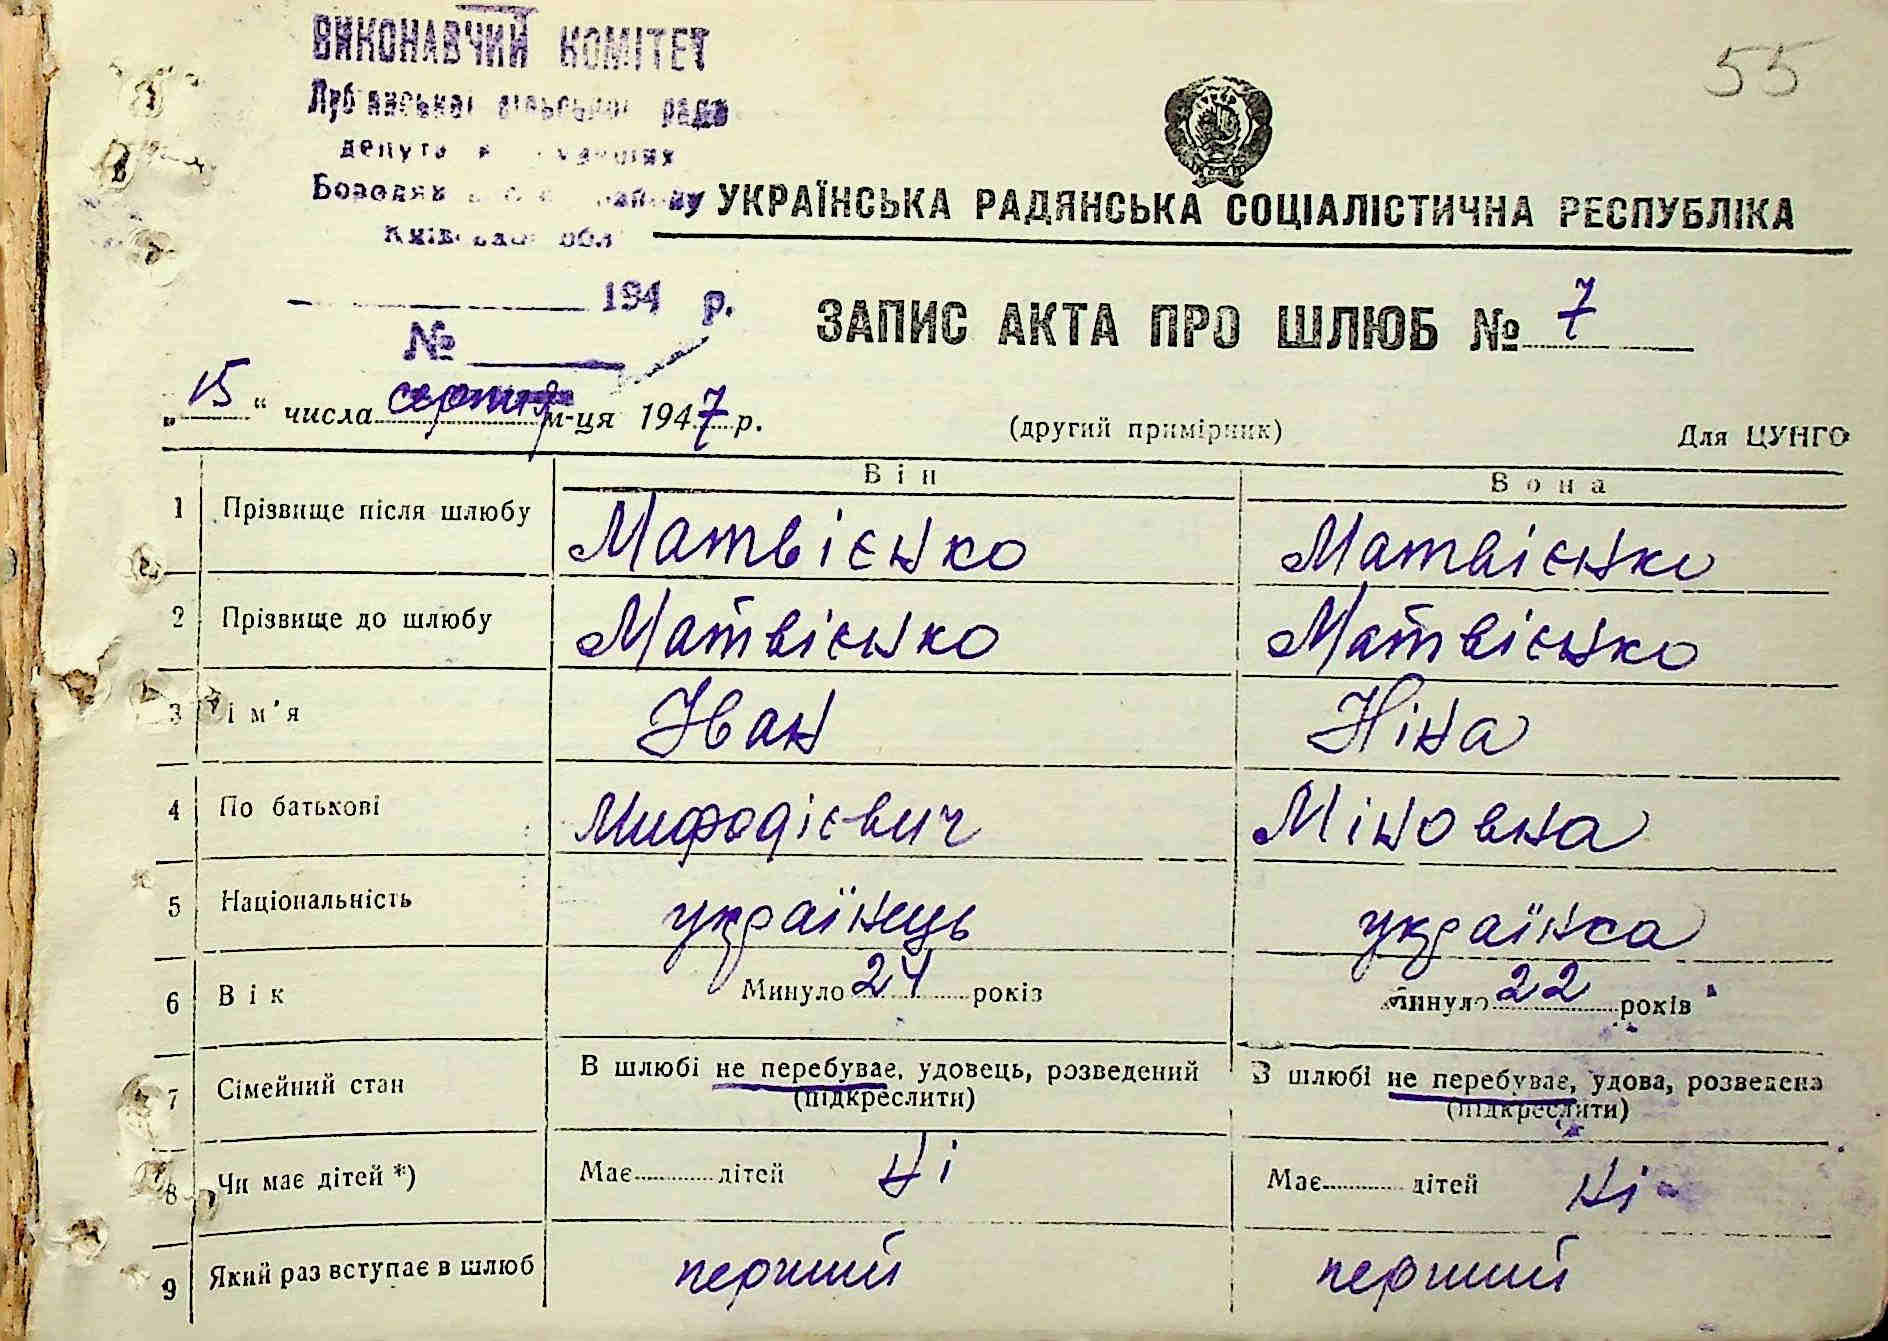 55
ВИКОНАВЧИЙ КОМІТЕТ
Луб'янської сільської ради
Київської обл
УКРАЇНСЬКА РАДЯНСЬКА СОЦІАЛІСТИЧНА РЕСПУБЛІКА
194 р.
№
ЗАПИС АКТА ПРО ШЛЮБ № 7
„15“ числа серпня м-ця 1947 р.
(другий примірник)
Для ЦУНГО
Він Вона
1 Прізвище після шлюбу Матвієнко Матвієнко
2 Прізвище до шлюбу Матвієнко Матвієнко
3 Ім'я Іван Ніна
4 По батькові Мифодієвич Міновна
5 Національність українець українка
6 Вік Минуло 24 років Минуло 22 років
7 Сімейний стан В шлюбі не перебуває, удовець, розведений В шлюбі не перебуває, удова, розведена
(підкреслити) (підкреслити)
8 Чи має дітей *) Має дітей Ні Має дітей Ні
9 Який раз вступає в шлюб перший перший